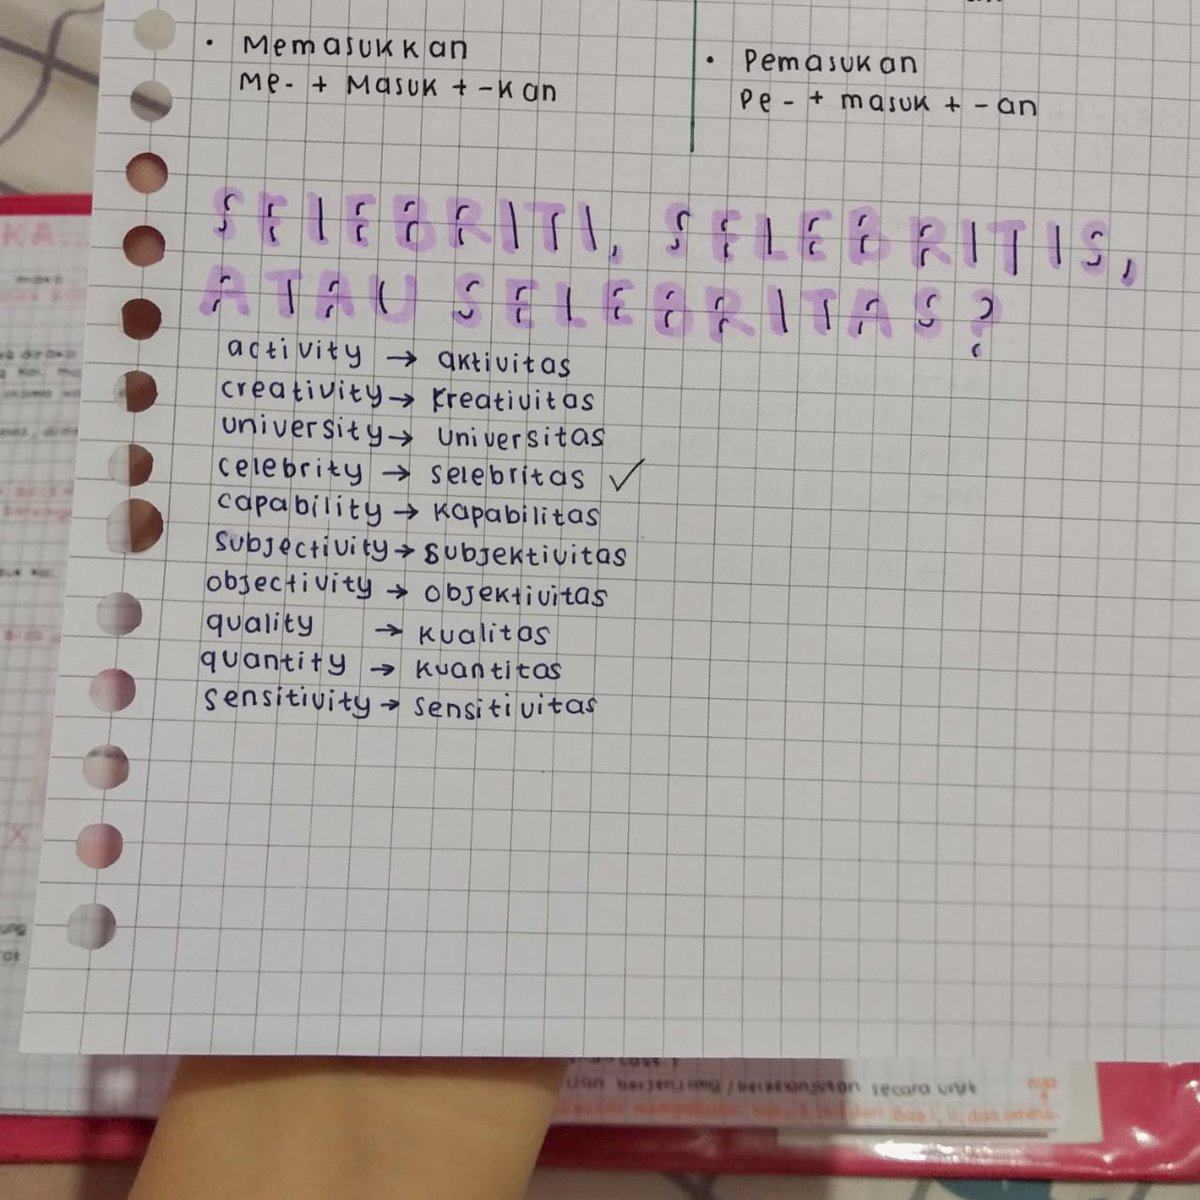 • Memasukkan
Me- + Masuk + -kan
• Pemasukan
Pe- + masuk + -an
SELEBRITI, SELEBRITIS,
ATAU SELEBRITAS?
activity → aktivitas
creativity → kreativitas
university → universitas
celebrity → selebritas ✓
capability → kapabilitas
subjectivity → subjektivitas
objectivity → objektivitas
quality → kualitas
quantity → kuantitas
sensitivity → sensitivitas
KA...
X
dan berjenjang/berkelanjutan secara urut